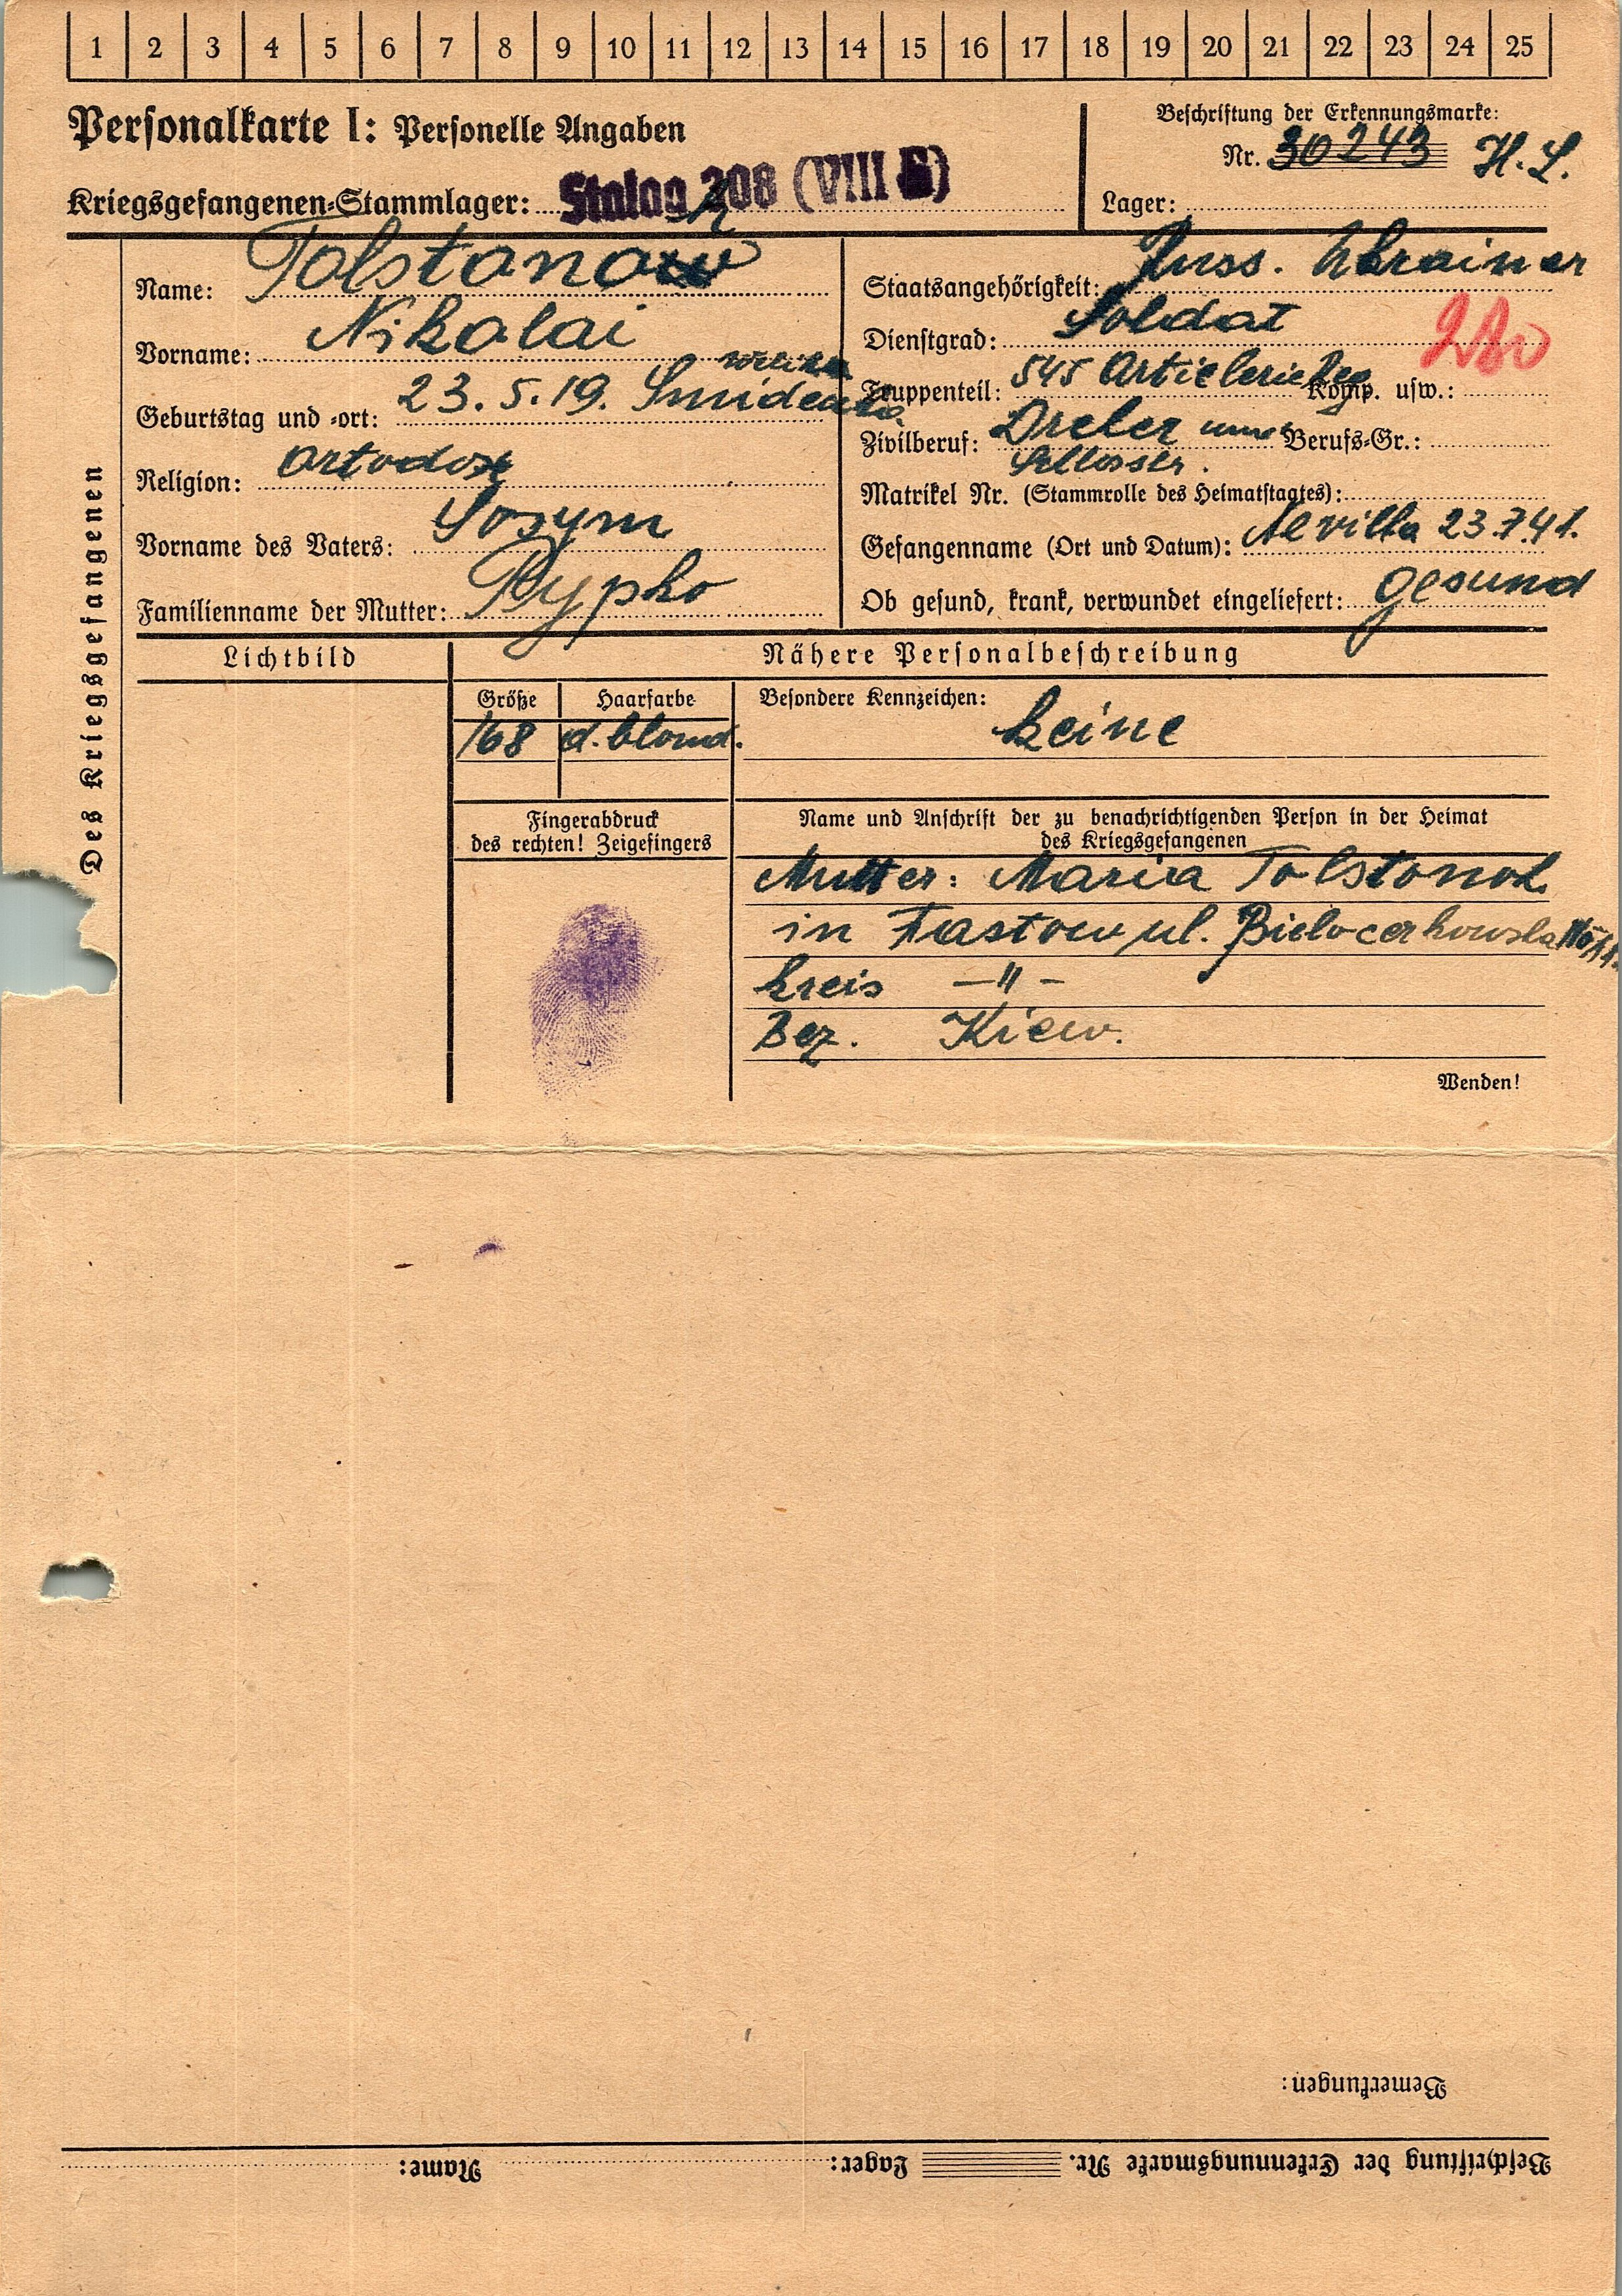 1 2 3 4 5 6 7 8 9 10 11 12 13 14 15 16 17 18 19 20 21 22 23 24 25
Personalkarte I: Personelle Angaben
Kriegsgefangenen-Stammlager: Stalag 308 (VIII E)
Beschriftung der Erkennungsmarke:
Nr. 30243 H. L.
Lager:
Des Kriegsgefangenen
Name: Tolstonow
Vorname: Nikolai
Geburtstag und -ort: 23. 5. 19.
Religion: Ortodox
Vorname des Vaters: Sosym
Familienname der Mutter: Rypko
Staatsangehörigkeit: Russ. Ukrainer
Dienstgrad: Soldat
Truppenteil: 545 Artielerie Reg Komp. usw.:
Zivilberuf: Dreler Berufs-Gr.:
Schlosser.
Matrikel Nr. (Stammrolle des Heimatstaates):
Gefangenname (Ort und Datum): 23.7.41.
Ob gesund, krank, verwundet eingeliefert: gesund
Lichtbild
Nähere Personalbeschreibung
Größe Haarfarbe Besondere Kennzeichen:
168 d. blond. keine
Fingerabdruck
des rechten! Zeigefingers
Name und Anschrift der zu benachrichtigenden Person in der Heimat
des Kriegsgefangenen
Mutter: Maria Tolstonoh
in Fastow ul. Bielocerkowska
Kreis -"-
Bez. Kiew.
Wenden!
Bemerkungen:
Beschriftung der Erkennungsmarke Nr. Lager: Name: